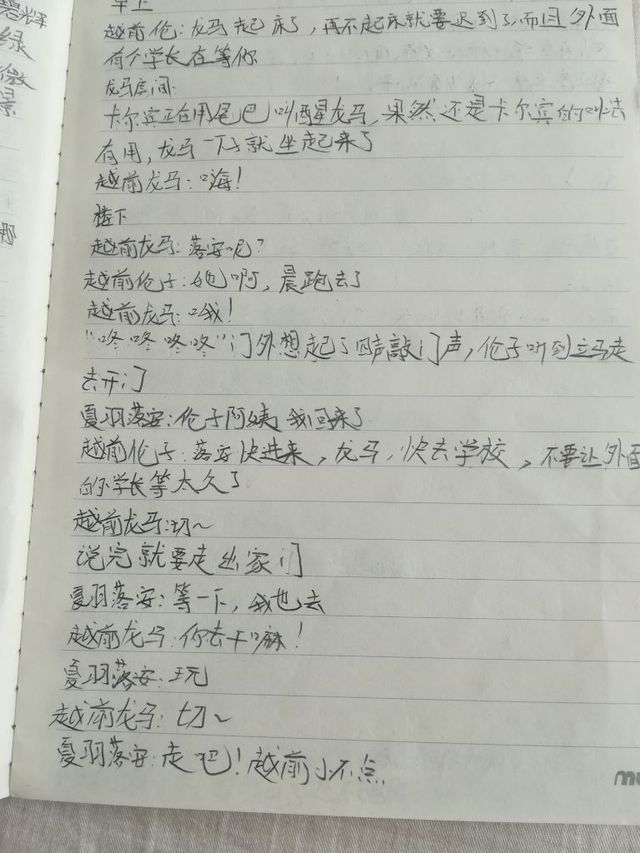 早上
越前伦:龙马起床了,再不起床就要迟到了,而且外面
有个学长在等你
龙马房间:
卡尔宾正在用尾巴叫醒龙马,果然还是卡尔宾的叫法
有用,龙马一下子就坐起来了
越前龙马:嗨!
楼下
越前龙马:落安呢?
越前伦子:她啊,晨跑去了
越前龙马:哦!
"咚咚咚咚"门外想起了四声敲门声,伦子听到立马走
去开门
夏羽落安:伦子阿姨我回来了
越前伦子:落安快进来,龙马,快去学校,不要让外面
的学长等太久了
越前龙马:切~
说完就要走出家门
夏羽落安:等一下,我也去
越前龙马:你去干嘛!
夏羽落安:玩
越前龙马:切~
夏羽落安:走吧!越前小不点
碧辉
绿
微
景